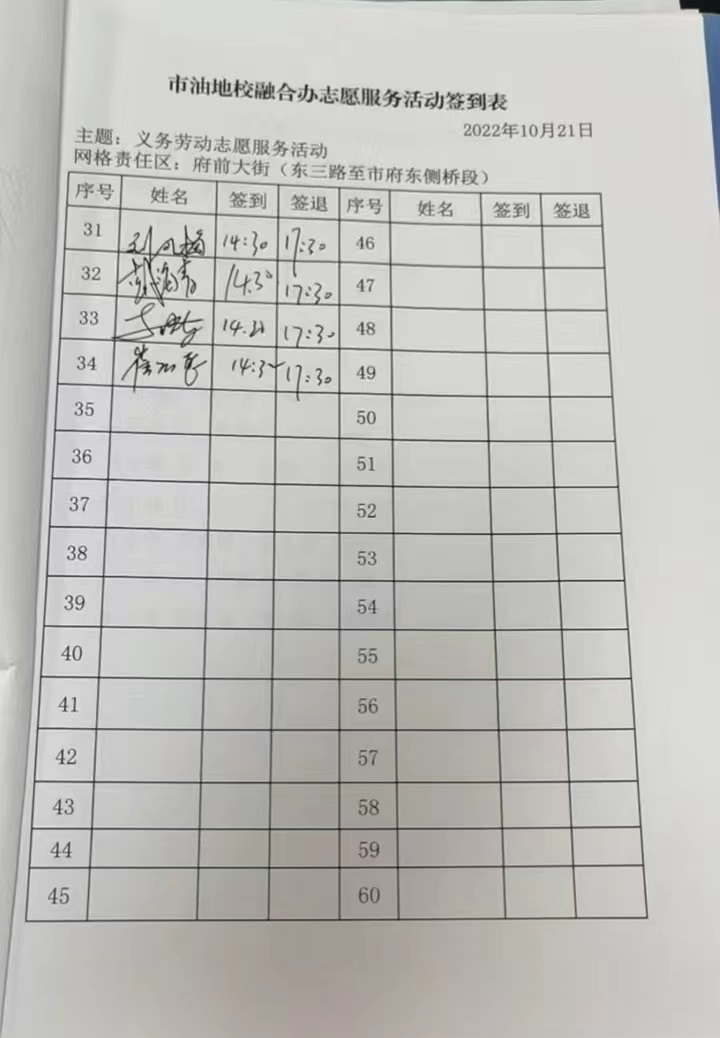 市油地校融合办志愿服务活动签到表
2022年10月21日
主题：义务劳动志愿服务活动
网格责任区：府前大街（东三路至市府东侧桥段）
序号 姓名 签到 签退 序号 姓名 签到 签退
31 14:30 17:30 46
32 14:30 17:30 47
33 17:30 48
34 17:30 49
35 50
36 51
37 52
38 53
39 54
40 55
41 56
42 57
43 58
44 59
45 60